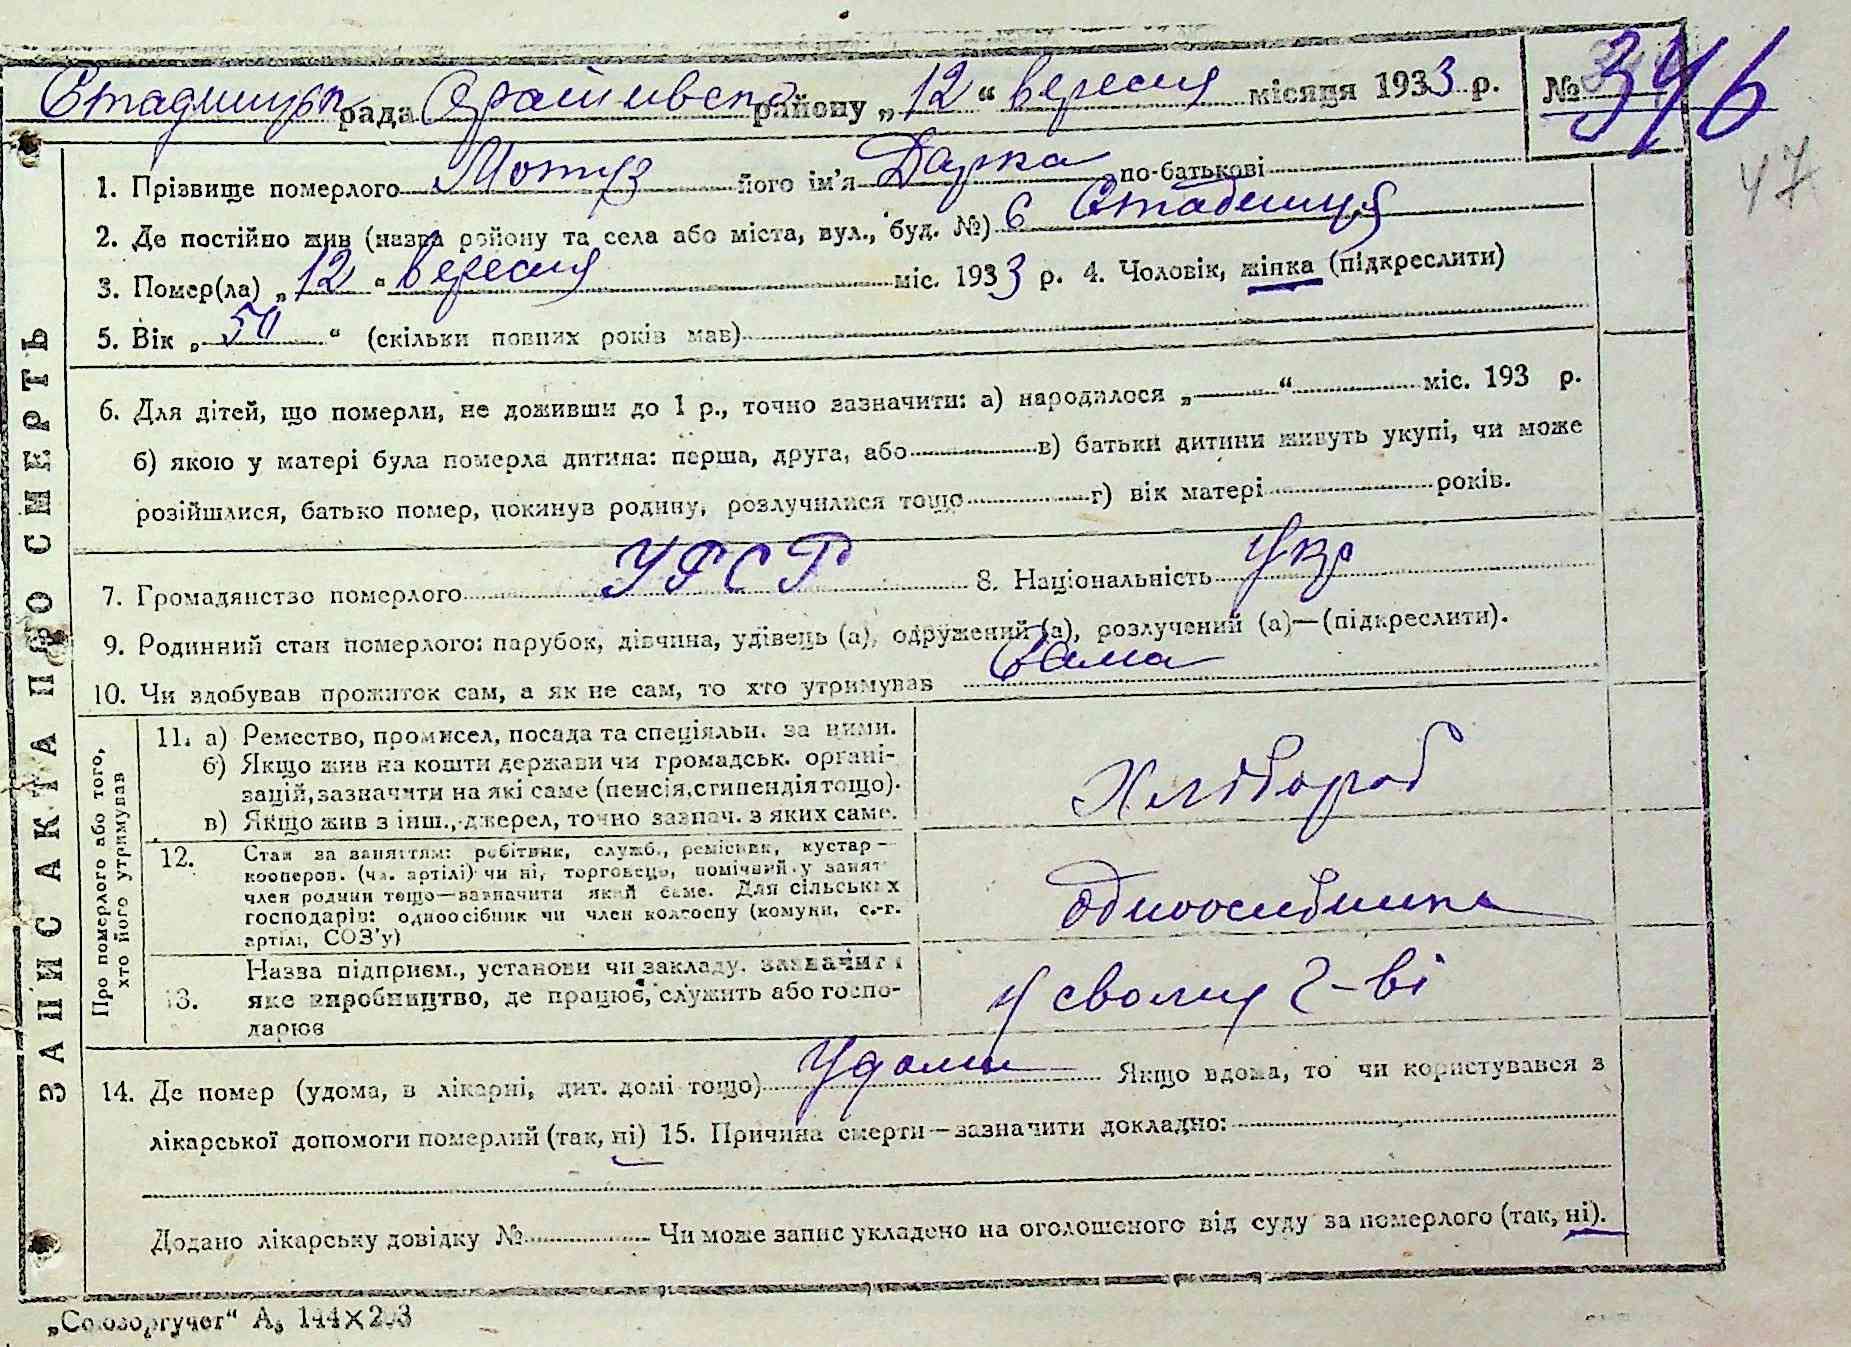 Стадницька рада району „12“ вересня місяця 1933 р. № 346
47
ЗАПИСКА ПРО СМЕРТЬ
1. Прізвище померлого Мотуз його ім’я Дарка по-батькові
2. Де постійно жив (назва району та села або міста, вул., буд. №) с Стадниця
3. Помер(ла) „12“ вересня міс. 1933 р. 4. Чоловік, жінка (підкреслити)
5. Вік „50“ (скільки повних років мав)
6. Для дітей, що померли, не доживши до 1 р., точно зазначити: а) народилося „—“ міс. 193 р.
б) якою у матері була померла дитина: перша, друга, або в) батьки дитини живуть укупі, чи може
розійшлися, батько помер, покинув родину, розлучилися тощо г) вік матері років.
7. Громадянство померлого УРСР 8. Національність Укр
9. Родинний стан померлого: парубок, дівчина, удівець (а), одружений (а), розлучений (а)—(підкреслити).
10. Чи здобував прожиток сам, а як не сам, то хто утримував Сама
Про померлого або того, хто його утримував
11. а) Ремество, промисел, посада та спеціяльн. за ними.
б) Якщо жив на кошти держави чи громадськ. органі-
зацій, зазначити на які саме (пенсія, стипендія тощо).
в) Якщо жив з інш., джерел, точно зазнач. з яких саме.
Хлібороб
12. Стан за заняттям: робітник, служб., ремісник, кустар—
кооперов. (чл. артілі) чи ні, торговець, помічний у занят
член родини тощо—зазначити який саме. Для сільських
господарів: одноосібник чи член колгоспу (комуни, с.-г.
артілі, СОЗ’у)
одноосибника
13. Назва підприєм., установи чи закладу. зазначити
яке виробництво, де працює, служить або госпо-
дарює
У своему г-ві
14. Де помер (удома, в лікарні, дит. домі тощо) Удома Якщо вдома, то чи користувався з
лікарської допомоги померлий (так, ні) 15. Причина смерти—зазначити докладно:
Додано лікарську довідку № Чи може запис укладено на оголошеного від суду за померлого (так, ні).
„Союзоргучет“ А₅ 144×203